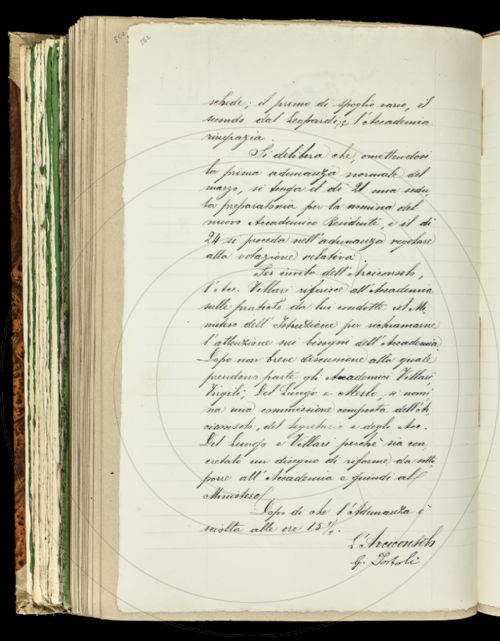 562
schede; il primo di spoglio vario, il
secondo dal Leopardi; e l'Accademia
ringrazia.
Si delibera che, omettendosi
la prima adunanza normale del
marzo, si tenga il dì 21 una sedu
ta preparatoria per la nomina del
nuovo Accademico Residente, e il dì
24 si proceda nell'adunanza regolare
alla votazione relativa.
Per invito dell'Arciconsolo,
l'Acc. Villari riferisce all'Accademia
sulle pratiche da lui condotte col Mi
nistero dell'Istruzione per richiamarne
l'attenzione sui bisogni dell'Accademia.
Dopo non breve discussione alla quale
prendono parte gli Accademici Villari,
Virgili, Del Lungo e Mesto, si nomi
na una commissione composta dell'Ar
ciconsolo, del segretario e degli Acc.
Del Lungo e Villari perchè sia con
cretato un disegno di riforme da sotto
porre all'Accademia e quindi al
Ministero.
Dopo di che l'Adunanza è
sciolta alle ore 15 1/2.
L'Arciconsolo
G. Tortoli